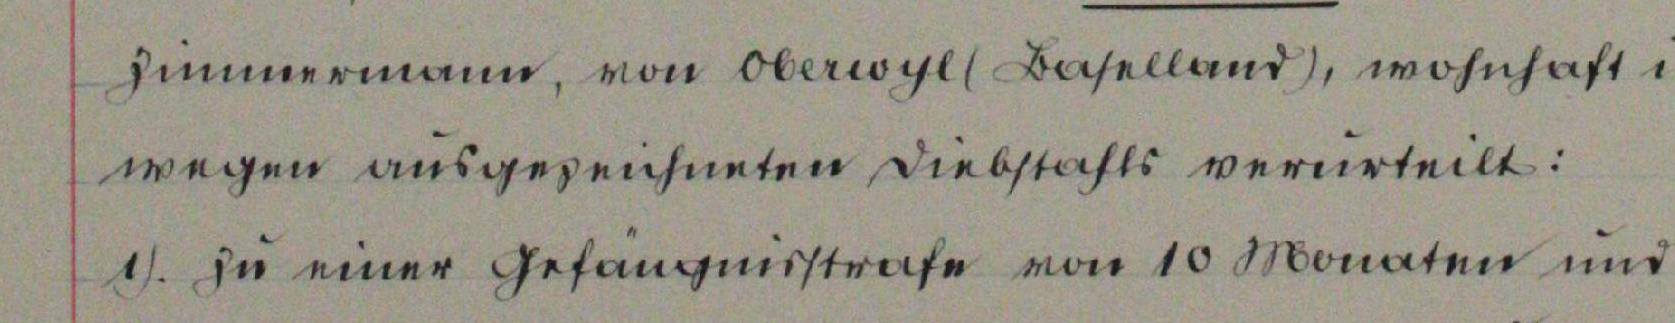 Zimmermann, von Oberwyl (Baselland), wohnhaft i
wegen ausgezeichneten Diebstahls verurteilt:
1). zu einer Gefängnisstrafe von 10 Monaten und